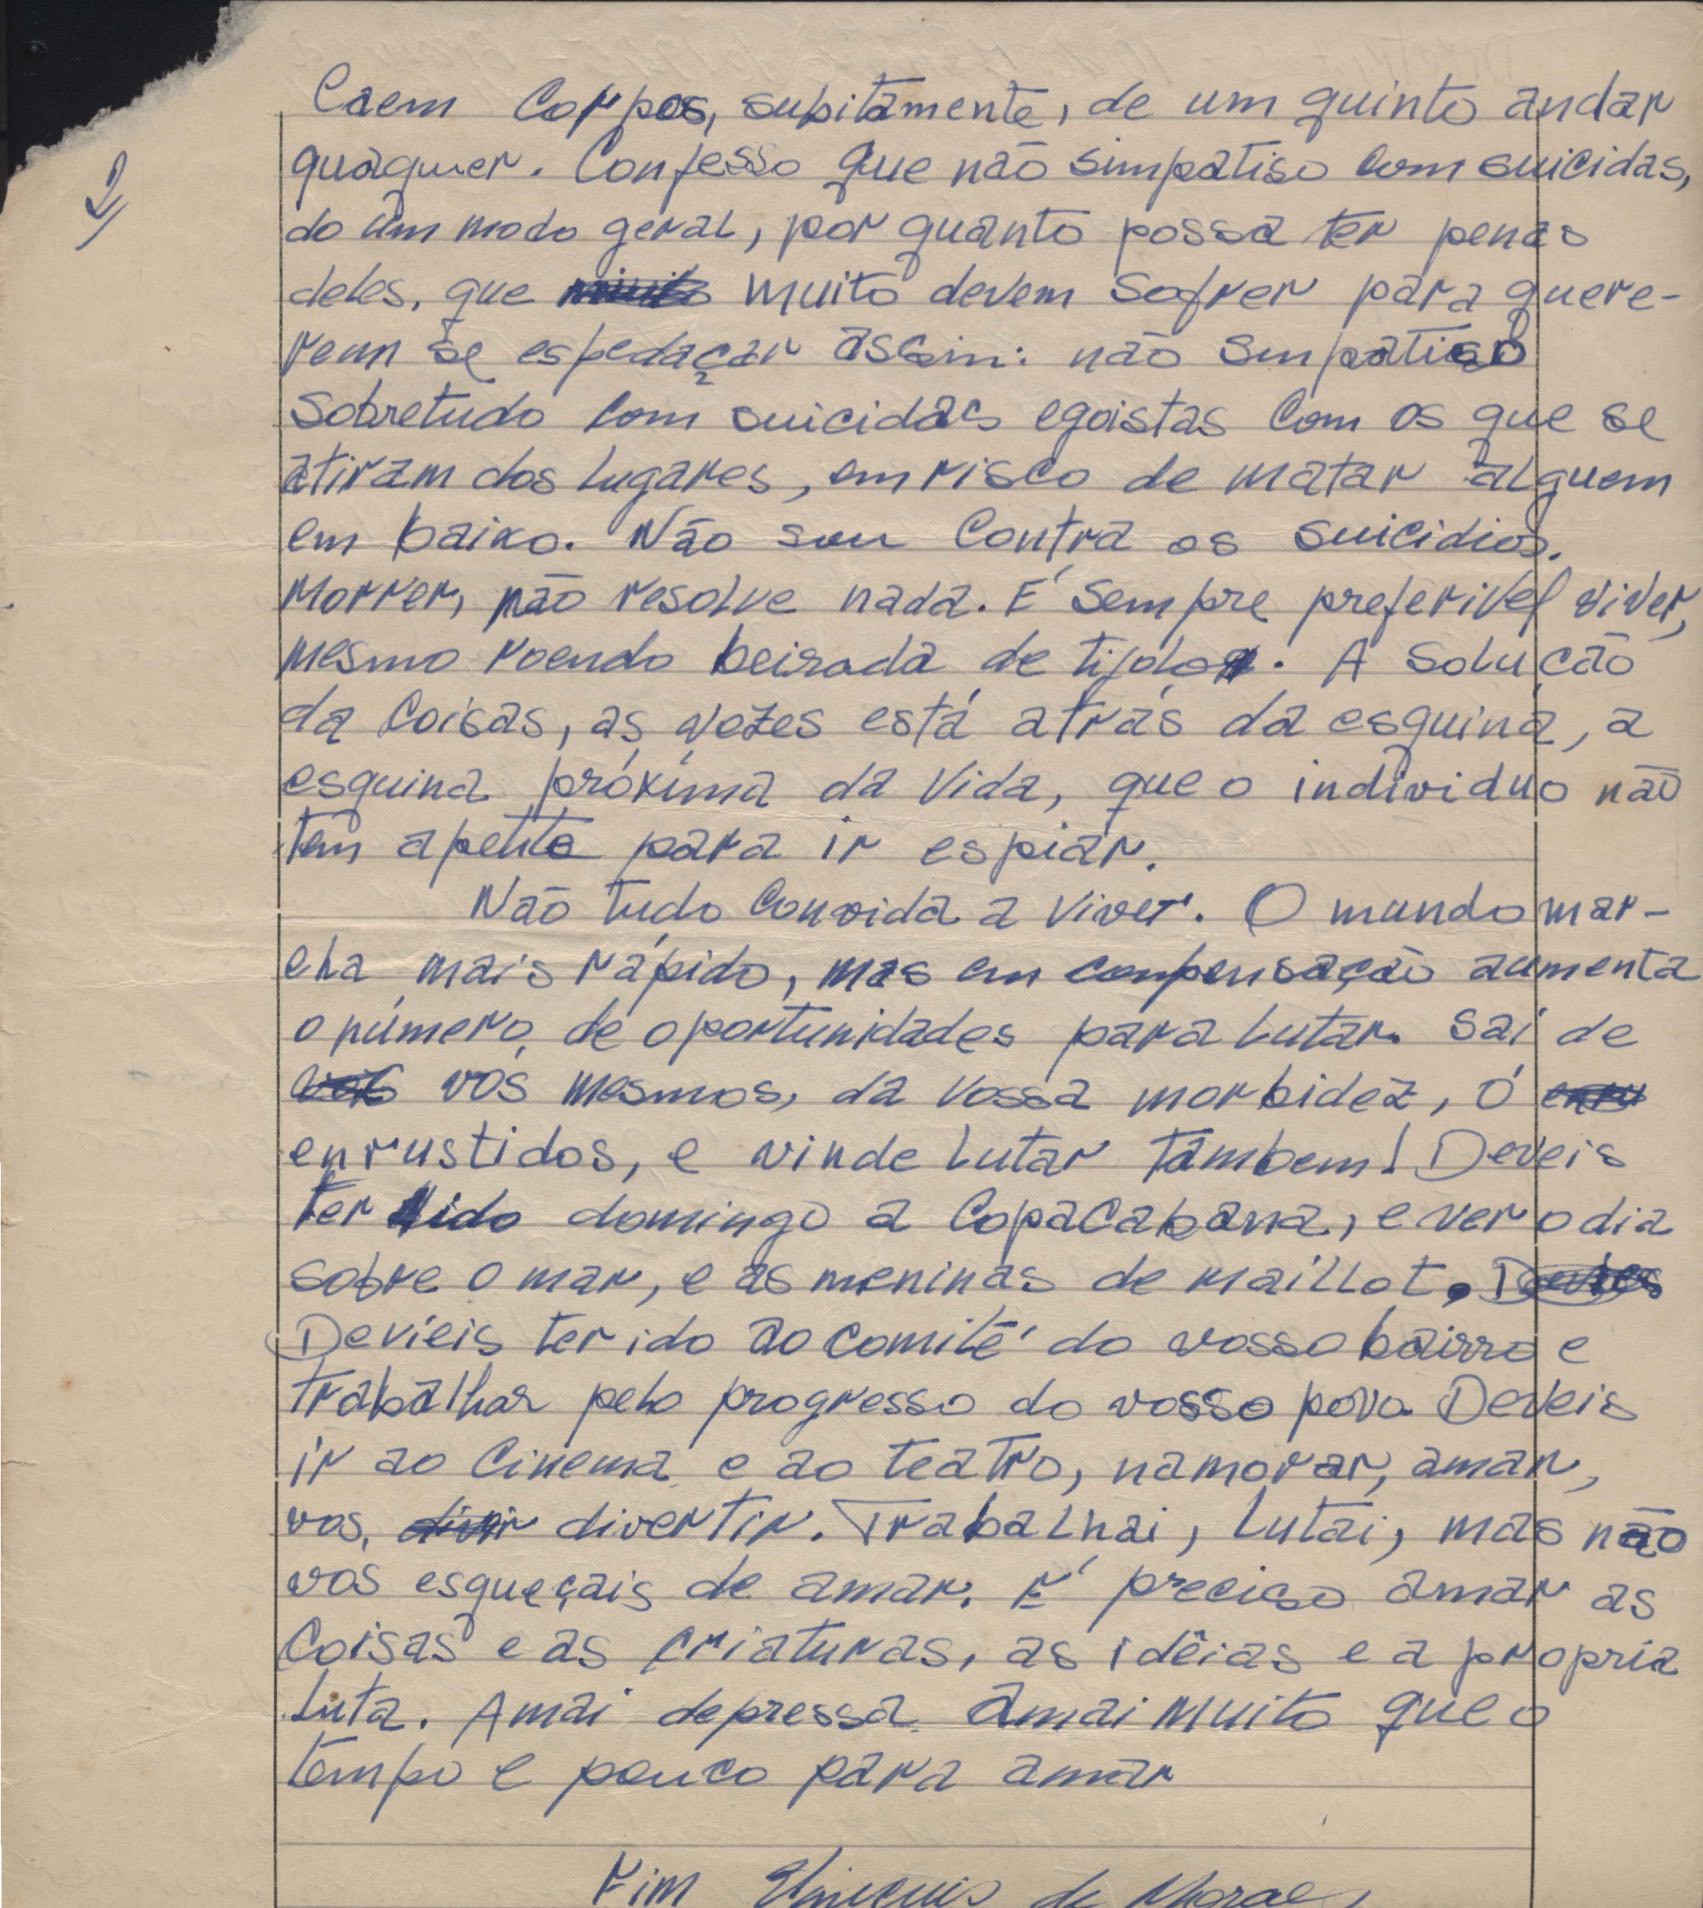 2)
Caem Corpos, subitamente, de um quinto andar
quaquer. Confesso que não simpatiso com suicidas,
do um modo geral, por quanto possa ter penas
deles, que muito devem Sofrer para quere-
rem se espedaçar assim: não simpatiso
Sobretudo com suicidas egoistas Com os que se
atiram dos lugares, em risco de matar alguem
em baixo. Não sou Contra os suicidios.
Morrer, não resolve nada. É sempre preferivel viver,
mesmo roendo beirada de tijolo. A solução
da Coisas, as vezes está atrás da esquina, a
esquina próxima da Vida, que o individuo não
tem apetite para ir espiar.
Não tudo Convida a viver. O mundo mar-
cha mais rápido, mas em compensação aumenta
o número de oportunidades para lutar. Saí de
vós mesmos, da vossa morbidez, ó
enrustidos, e vinde lutar tambem! Deveis
ter ido domingo a Copacabana, e ver o dia
sobre o mar, e as meninas de maillot.
Devíeis ter ido ao comité do vosso bairro e
trabalhar pelo progresso do vosso povo. Deveis
ir ao Cinema e ao teatro, namorar, amar,
vos, divertir. Trabalhai, lutai, mas não
vos esqueçais de amar. É preciso amar as
Coisas e as criaturas, as idêias e a propria
luta. Amai depressa Amai muito que o
tempo e pouco para amar
Fim Vinicius de Moraes